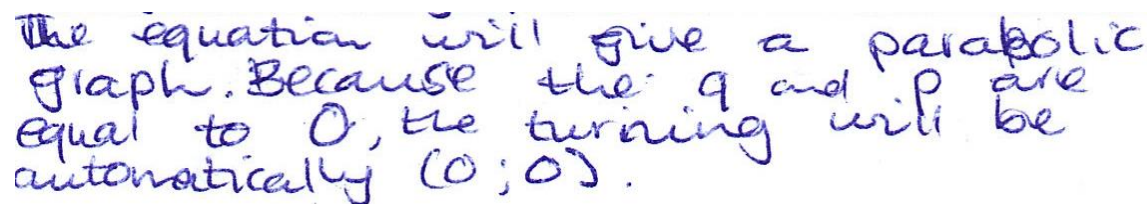 The equation will give a parabolic
graph. Because the q and p are
equal to 0, the turning will be
automatically (0;0).